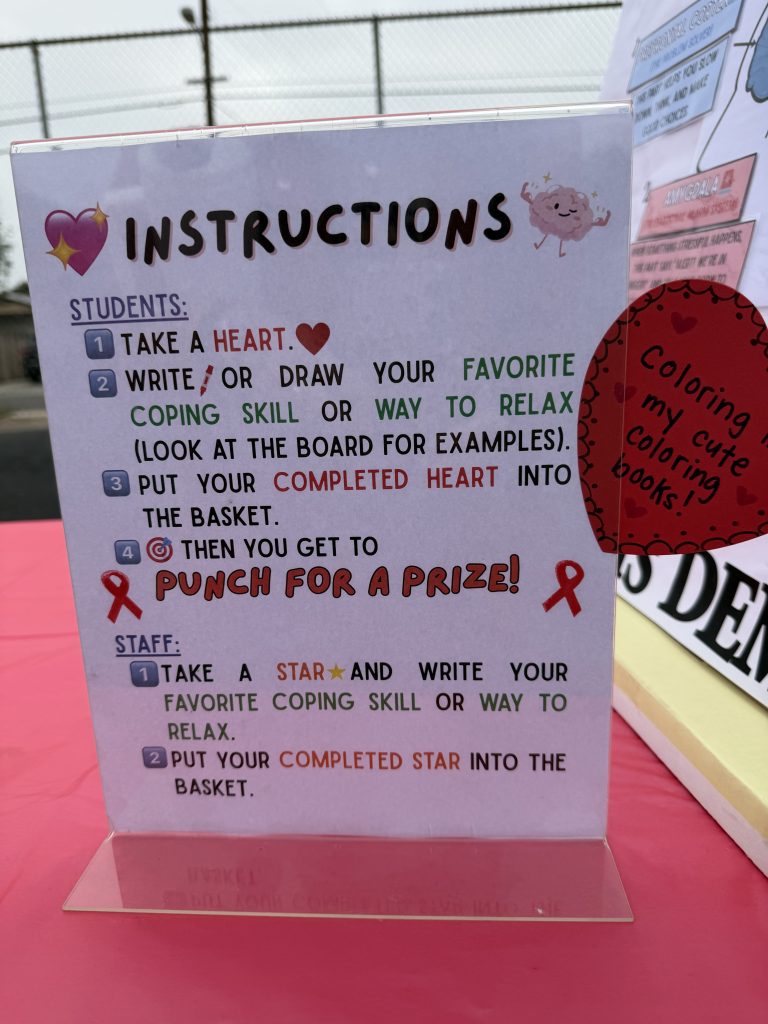 INSTRUCTIONS
STUDENTS:
1 TAKE A HEART.
2 WRITE OR DRAW YOUR FAVORITE
COPING SKILL OR WAY TO RELAX
(LOOK AT THE BOARD FOR EXAMPLES).
3 PUT YOUR COMPLETED HEART INTO
THE BASKET.
4 THEN YOU GET TO
PUNCH FOR A PRIZE!
STAFF:
1 TAKE A STAR AND WRITE YOUR
FAVORITE COPING SKILL OR WAY TO
RELAX.
2 PUT YOUR COMPLETED STAR INTO THE
BASKET.
PREFRONTAL CORTEX
THE PROBLEM SOLVER!
THIS PART HELPS YOU SLOW
DOWN, THINK, AND MAKE
GOOD CHOICES.
2 AMYGDALA
WHEN SOMETHING STRESSFUL HAPPENS,
THIS PART SAYS "ALERT! WE'RE IN
Coloring
my cute
coloring
books!
DEN